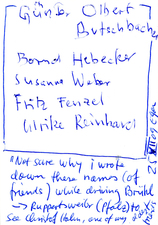 Günter Olbert
Butschbacher
Bernd Hebecker
Susanne Weber
Fritz Fenzel
Ulrike Reinhard
"Not sure why i wrote
down these names (of
friends) while driving Brühl
→ Ruppertsweiler (Pfalz) to
see Christof Hahn, one of my